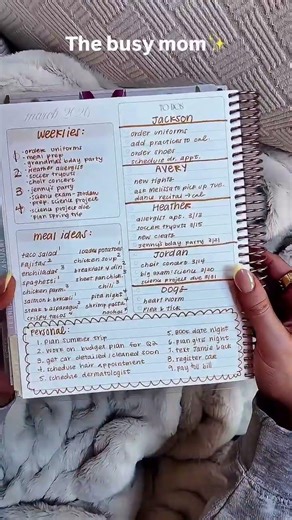 The busy mom✨
WEEKLIES:
- order uniforms
- meal prep
- grandma's bday party
2 - heather allergist
- soccer tryouts
- choir concert
3 - jenny's party
- science exam - Jordan
- prep science project
4 - science project due
- plan spring trip
meal ideas:
taco salad
fajitas 2
enchiladas 3
spaghetti
chicken parm
salmon & broccoli
steak & asparagus 2
crispy tacos
loaded potatoes
chicken soup 2
breakfast 4 din
sheet pan
chili 3
pita night
shrimp pasta
nachos
TO DO:
Jackson
order uniforms
add practices to cal
order shoes
schedule dr. appt.
AVERY
new tights
ask Melissa to pick up Tues.
dance recital → cal
Heather
allergist apt. 3/12
soccer tryouts 3/15
new cleats
Jenny's bday party
Jordan
choir concert 3/14
big exam! science 3/20
science project due
DOG
heart worm
flea & tick
Personal:
1. plan summer trip
2. work on budget plan for Q2
3. get car detailed/cleaned soon
4. schedule hair appointment
5. schedule dermatologist
5. book date night
6. plan girls night
7. text Jamie back
8. register car
9. pay bill